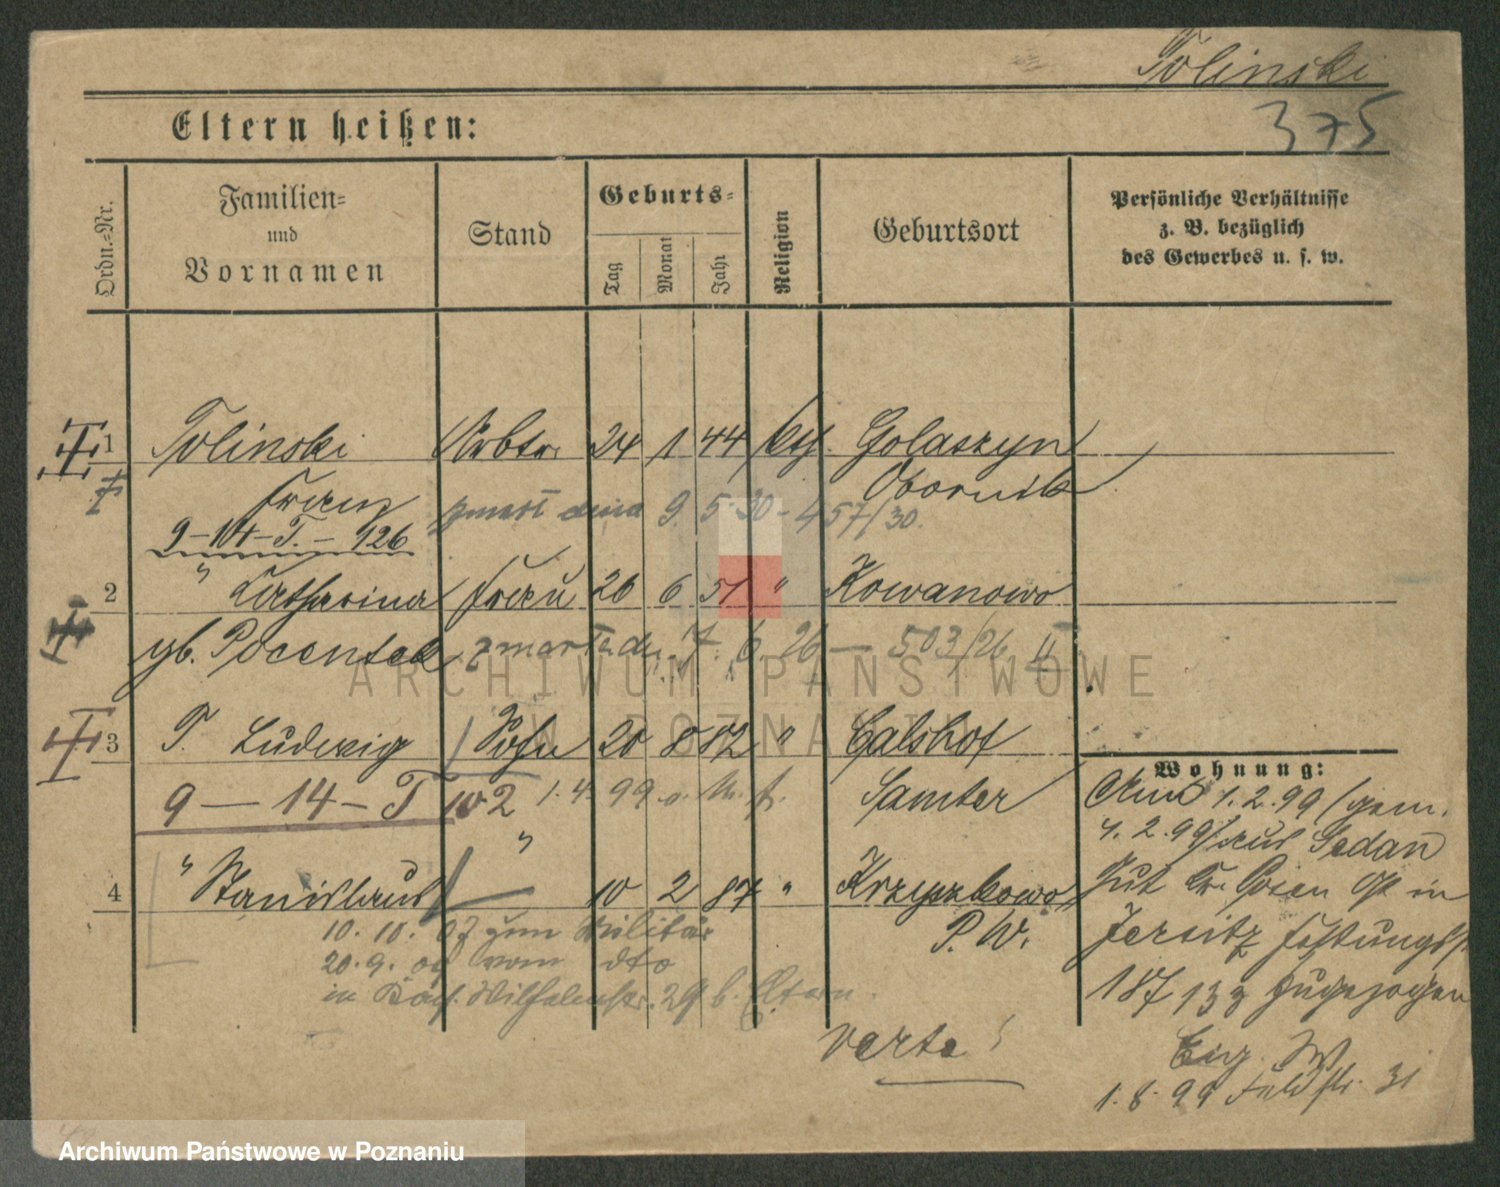 Tolinski
375
Eltern heißen:
Ordn.=Nr.
Familien=
und
Vornamen
Stand
Geburts=
Tag
Monat
Jahr
Religion
Geburtsort
Persönliche Verhältnisse
z. B. bezüglich
des Gewerbes u. s. w.
1 Tolinski Arbtr. 24 1 44 kth. Golaszyn
Franz Obornik
zmarł dnia 9. 5. 30 - 457/30.
9-14-T. - 126
2 " Catharina Frau 26 6 51 " Kowanowo
gb. Pocentek zmarła dn. 17. 6. 26 — 503/26 II
3 T. Ludwig Sohn 20 8 82 " Galshof
9 — 14 - T 102 1.4.99 Samter
"
4 " Stanislaus 10 2 87 " Krzyszkowo
P. W.
10. 10. 07 zum Militär
20. 9. 09 vom dto
in Wilhelmstr. 29 b. Eltern.
Wohnung:
1.2.99 (gem.
4. 2. 99) aus Sedan
Gut Kr. Posen Ost in
Jersitz Festungsstr.
187 zugezogen
1. 8. 99 Feldstr. 31
verte!
ARCHIWUM PAŃSTWOWE
W POZNANIU
Archiwum Państwowe w Poznaniu